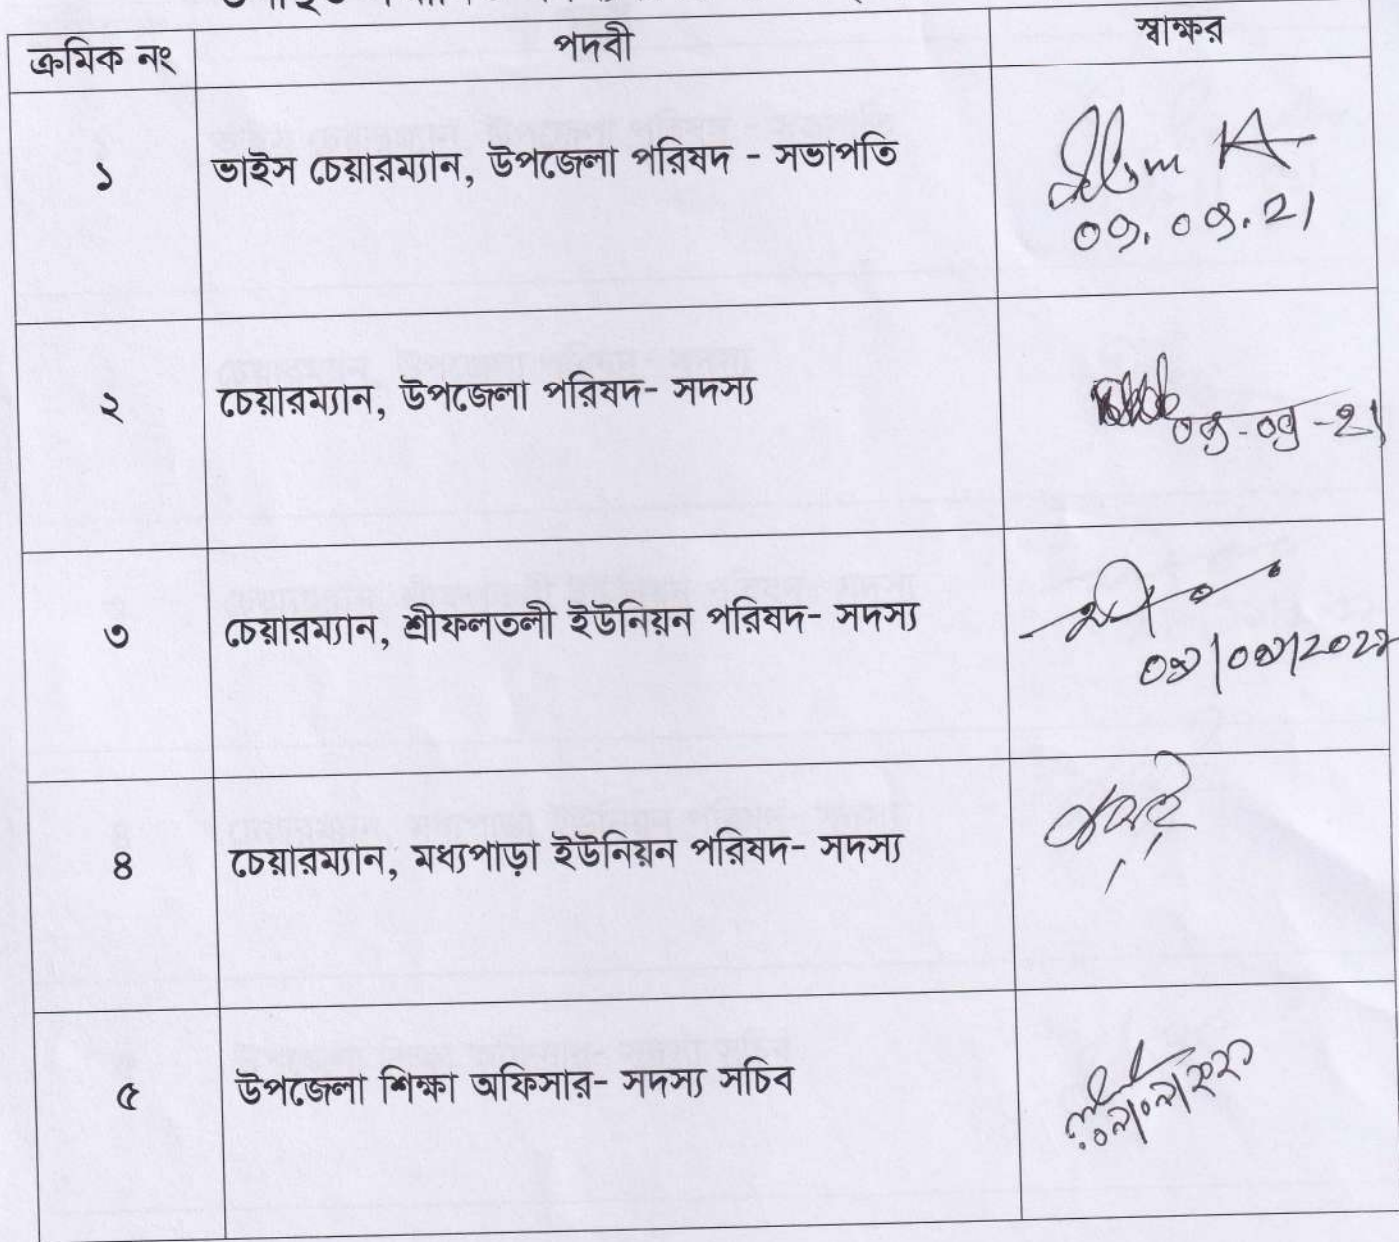 ক্রমিক নং পদবী স্বাক্ষর
১ ভাইস চেয়ারম্যান, উপজেলা পরিষদ - সভাপতি
09. 09. 21
২ চেয়ারম্যান, উপজেলা পরিষদ- সদস্য
09-09-21
৩ চেয়ারম্যান, শ্রীফলতলী ইউনিয়ন পরিষদ- সদস্য
৪ চেয়ারম্যান, মধ্যপাড়া ইউনিয়ন পরিষদ- সদস্য
৫ উপজেলা শিক্ষা অফিসার- সদস্য সচিব